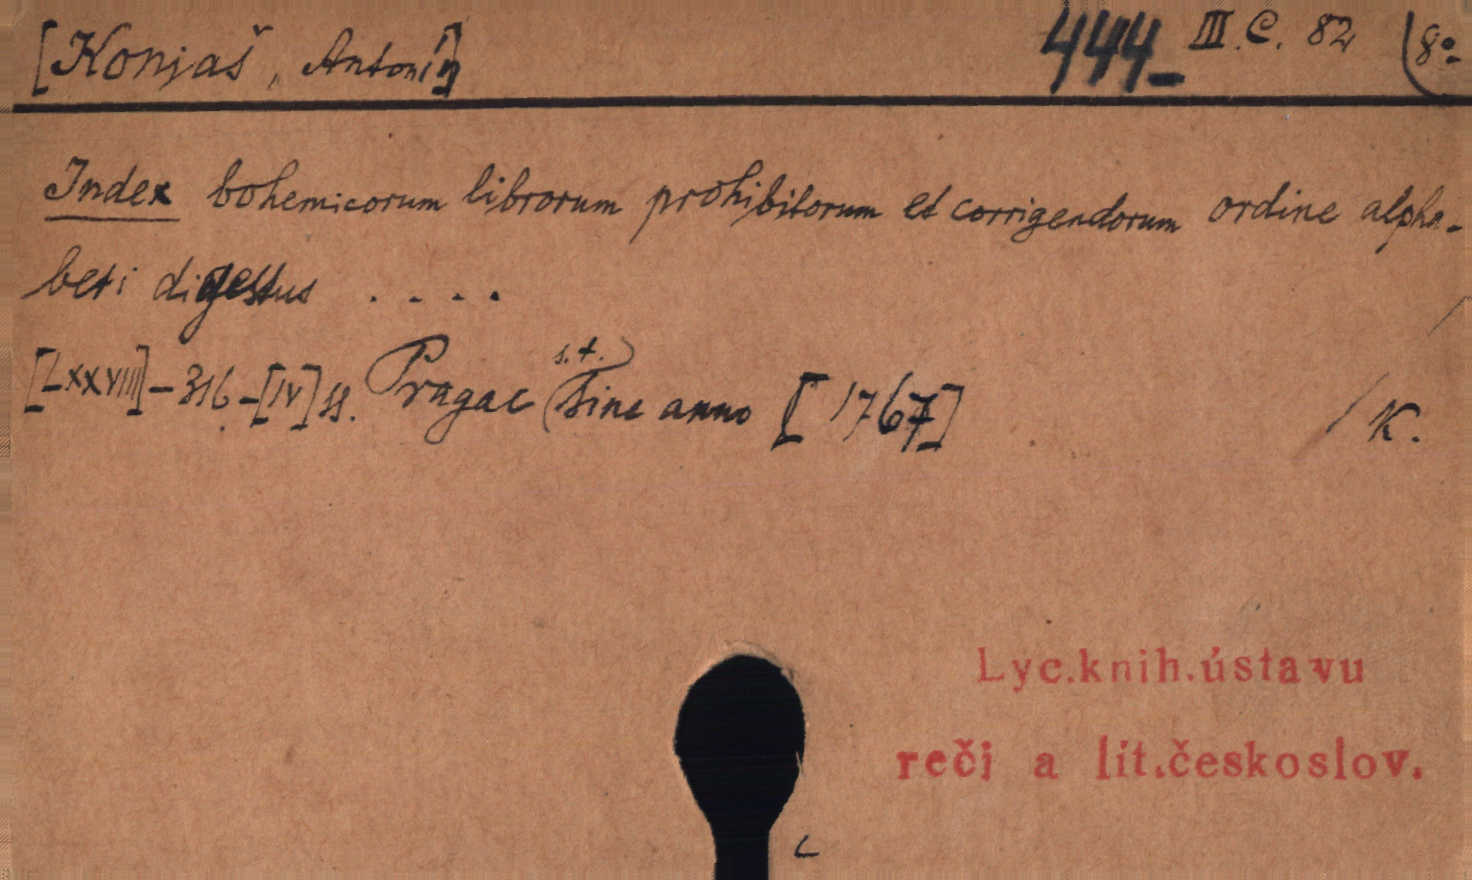 [Konjaš, Antonín] 444- III.C. 82 8°
Index bohemicorum librorum prohibitorum et corrigendorum ordine alpha-
beti digestus ....
[LXXVIII]-316-[IV] s. Pragae (s.t.) sine anno [1767] / K.
Lyc.knih.ústavu
reči a lit.českoslov.